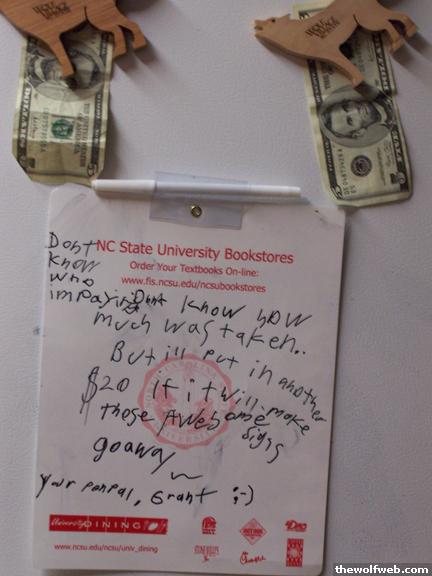 NC State University Bookstores
Order Your Textbooks On-line:
www.fis.ncsu.edu/ncsubookstores
Dont
know
who
im paying
Dont know how
much was taken..
But ill put in another
$20 if it will make
these Awesome signs
go away
your penpal, Grant ;-)
University DINING
www.ncsu.edu/ncsu/univ_dining
www.thewolfweb.com